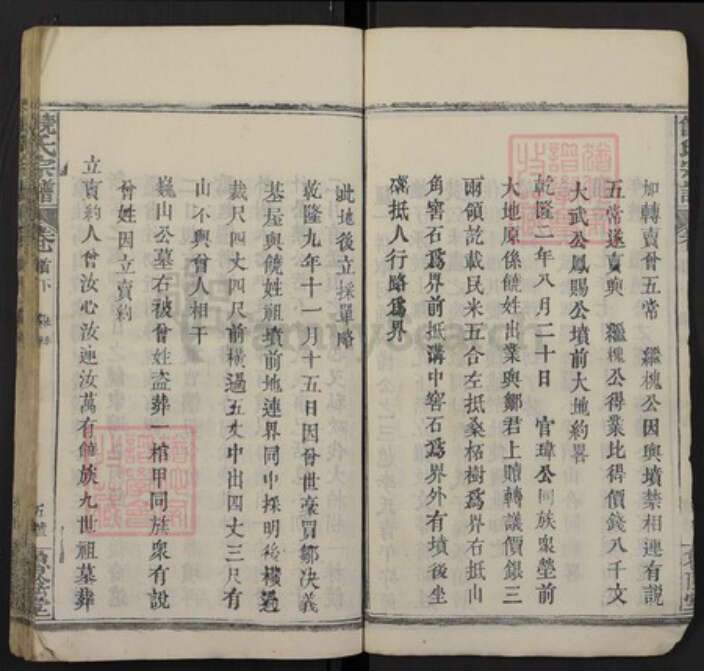 加轉賣曾五常　繼槐公因與墳禁相連有説
五常遂賣與　繼槐公得業比得價錢八千文
大武公鳳賜公墳前大地約畧
乾隆二年八月二十日　官瑋公同族衆塋前
大地原係饒姓出業與鄒君上贖轉議價銀三
兩領訖載民米五合左抵桑柘樹爲界右抵山
角窖石爲界前抵溝中窖石爲界外有墳後坐
抵人行路爲界
此地後立採單略
乾隆九年十一月十五日因曾世豪買鄒決義
基屋與饒姓祖墳前地連界同中採明後橫過
裁尺四丈四尺前橫過五丈中出四丈三尺有
山不與曾人相干
巍山公墓右被曾姓盜葬一棺甲同族衆有說
曾姓因立賣約
立賣約人曾汝心汝連汝萬有饒族九世祖墓葬
饒氏宗譜
首下